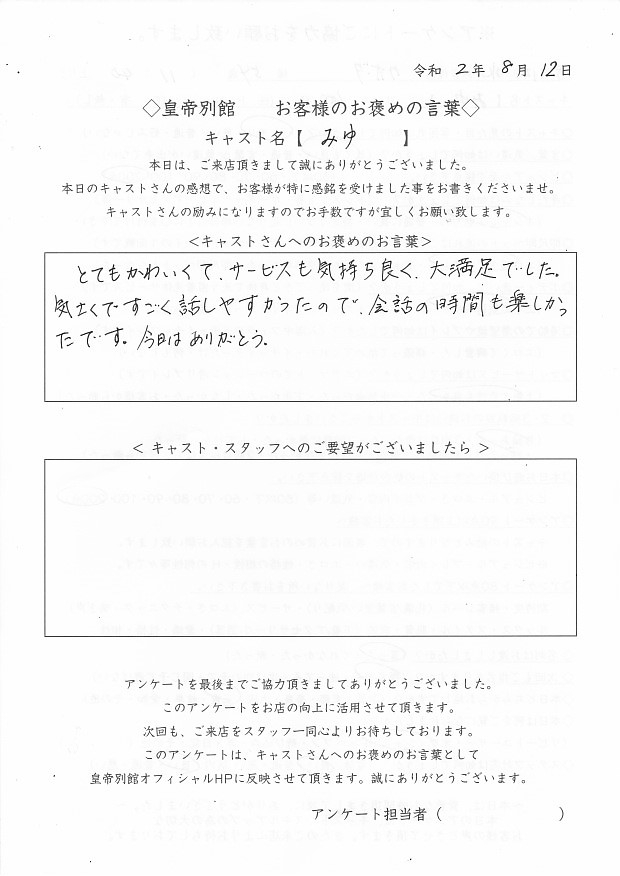 令和 2年 8月 12日
◇皇帝別館　　お客様のお褒めの言葉◇
キャスト名【 みゆ 】
本日は、ご来店頂きまして誠にありがとうございました。
本日のキャストさんの感想で、お客様が特に感銘を受けました事をお書きくださいませ。
キャストさんの励みになりますのでお手数ですが宜しくお願い致します。
＜キャストさんへのお褒めのお言葉＞
とてもかわいくて、サービスも気持ち良く、大満足でした。
気さくですごく話しやすかったので、会話の時間も楽しかっ
たです。今日はありがとう。
＜ キャスト・スタッフへのご要望がございましたら ＞
アンケートを最後までご協力頂きましてありがとうございました。
このアンケートをお店の向上に活用させて頂きます。
次回も、ご来店をスタッフ一同心よりお待ちしております。
このアンケートは、キャストさんへのお褒めのお言葉として
皇帝別館オフィシャルHPに反映させて頂きます。誠にありがとうございます。
アンケート担当者（　　　　　　　）